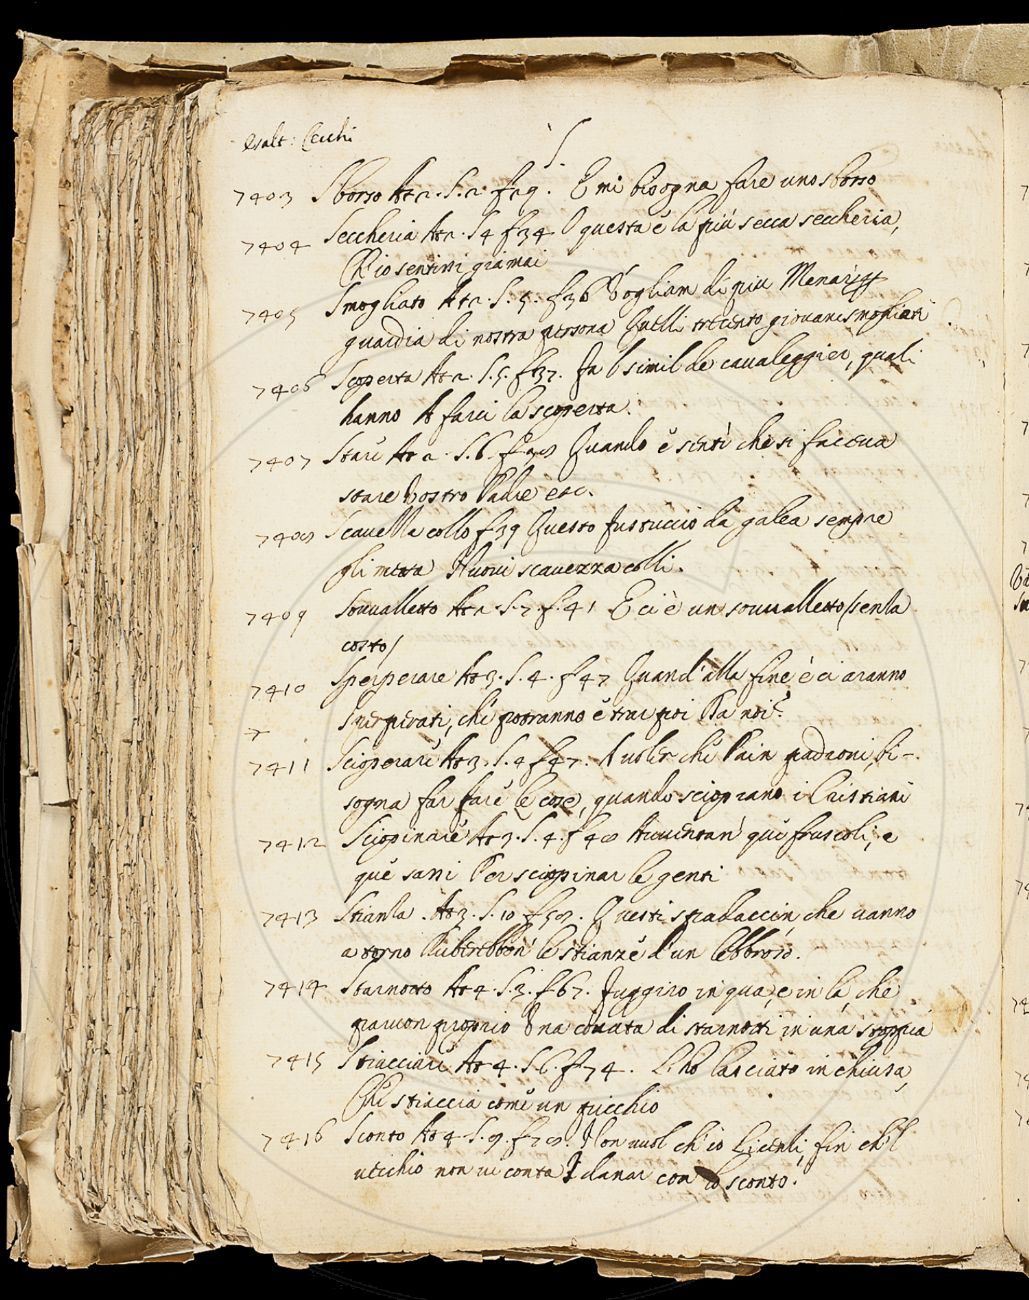 Esalt: Cecchi
S.
7403 Sborso Att 2. S. 2. f 29. E mi bisogna fare uno sborso
7404 Seccheria Att 2. S 4 f 34 O questa è la più secca seccheria,
Ch'io sentissi giamai
7405 Smogliato Att 2. S. 5. f 36 Vogliam di più Menare
guardia di nostra persona Quelli trecento giovani smogliati
7406 Scoperta Att 2. S. 5. f 37. Fa 'l simil de cavaleggier, quali
hanno A farci la scoperta.
7407 Stare Att 2. S. 6. f 38 Quando e sentì che si faceva
stare Vostro Padre etc.
7408 Scavezza collo f 39 Questo fustuccio da galea sempre
gli metta Nuovi scavezza colli.
7409 Souvalletto Att 2. S. 7. f. 41 E ci è un souvalletto (senla
costo)
7410 Sperperare Att 3. S. 4. f 47 Quand' alla fine e ci aranno
Sperperati, che potranno e trar poi Da noi?
7411 Scioperare Att 3. S. 4 f 47. A voler che Pain padroni, bi-
sogna far fare le cose, quando scioprano i Cristiani
7412 Sciopinare Att 3. S. 4. f 48 Avventan' que fruscoli, e
que sassi Per sciopinar le genti
7413 Stianza. Att 3. S. 10 f 58. Questi spadaccin che vanno
a torno Ruberebbon' le stianze d'un lebbroso.
7414 Starnotto Att 4. S. 3. f 67. Fuggiro in qua, e in là, che
parvon proprio Una covata di starnotti in una stoppia
7415 Stiacciare Att 4. S 6. f 74. L'hò lasciato in chiusa,
Che stiaccia come un picchio
7416 Sconto Att 4 S. 9. f 78. Non vuol ch'io licenzi, fin ch'l
vecchio non vi conta I danar con lo sconto.